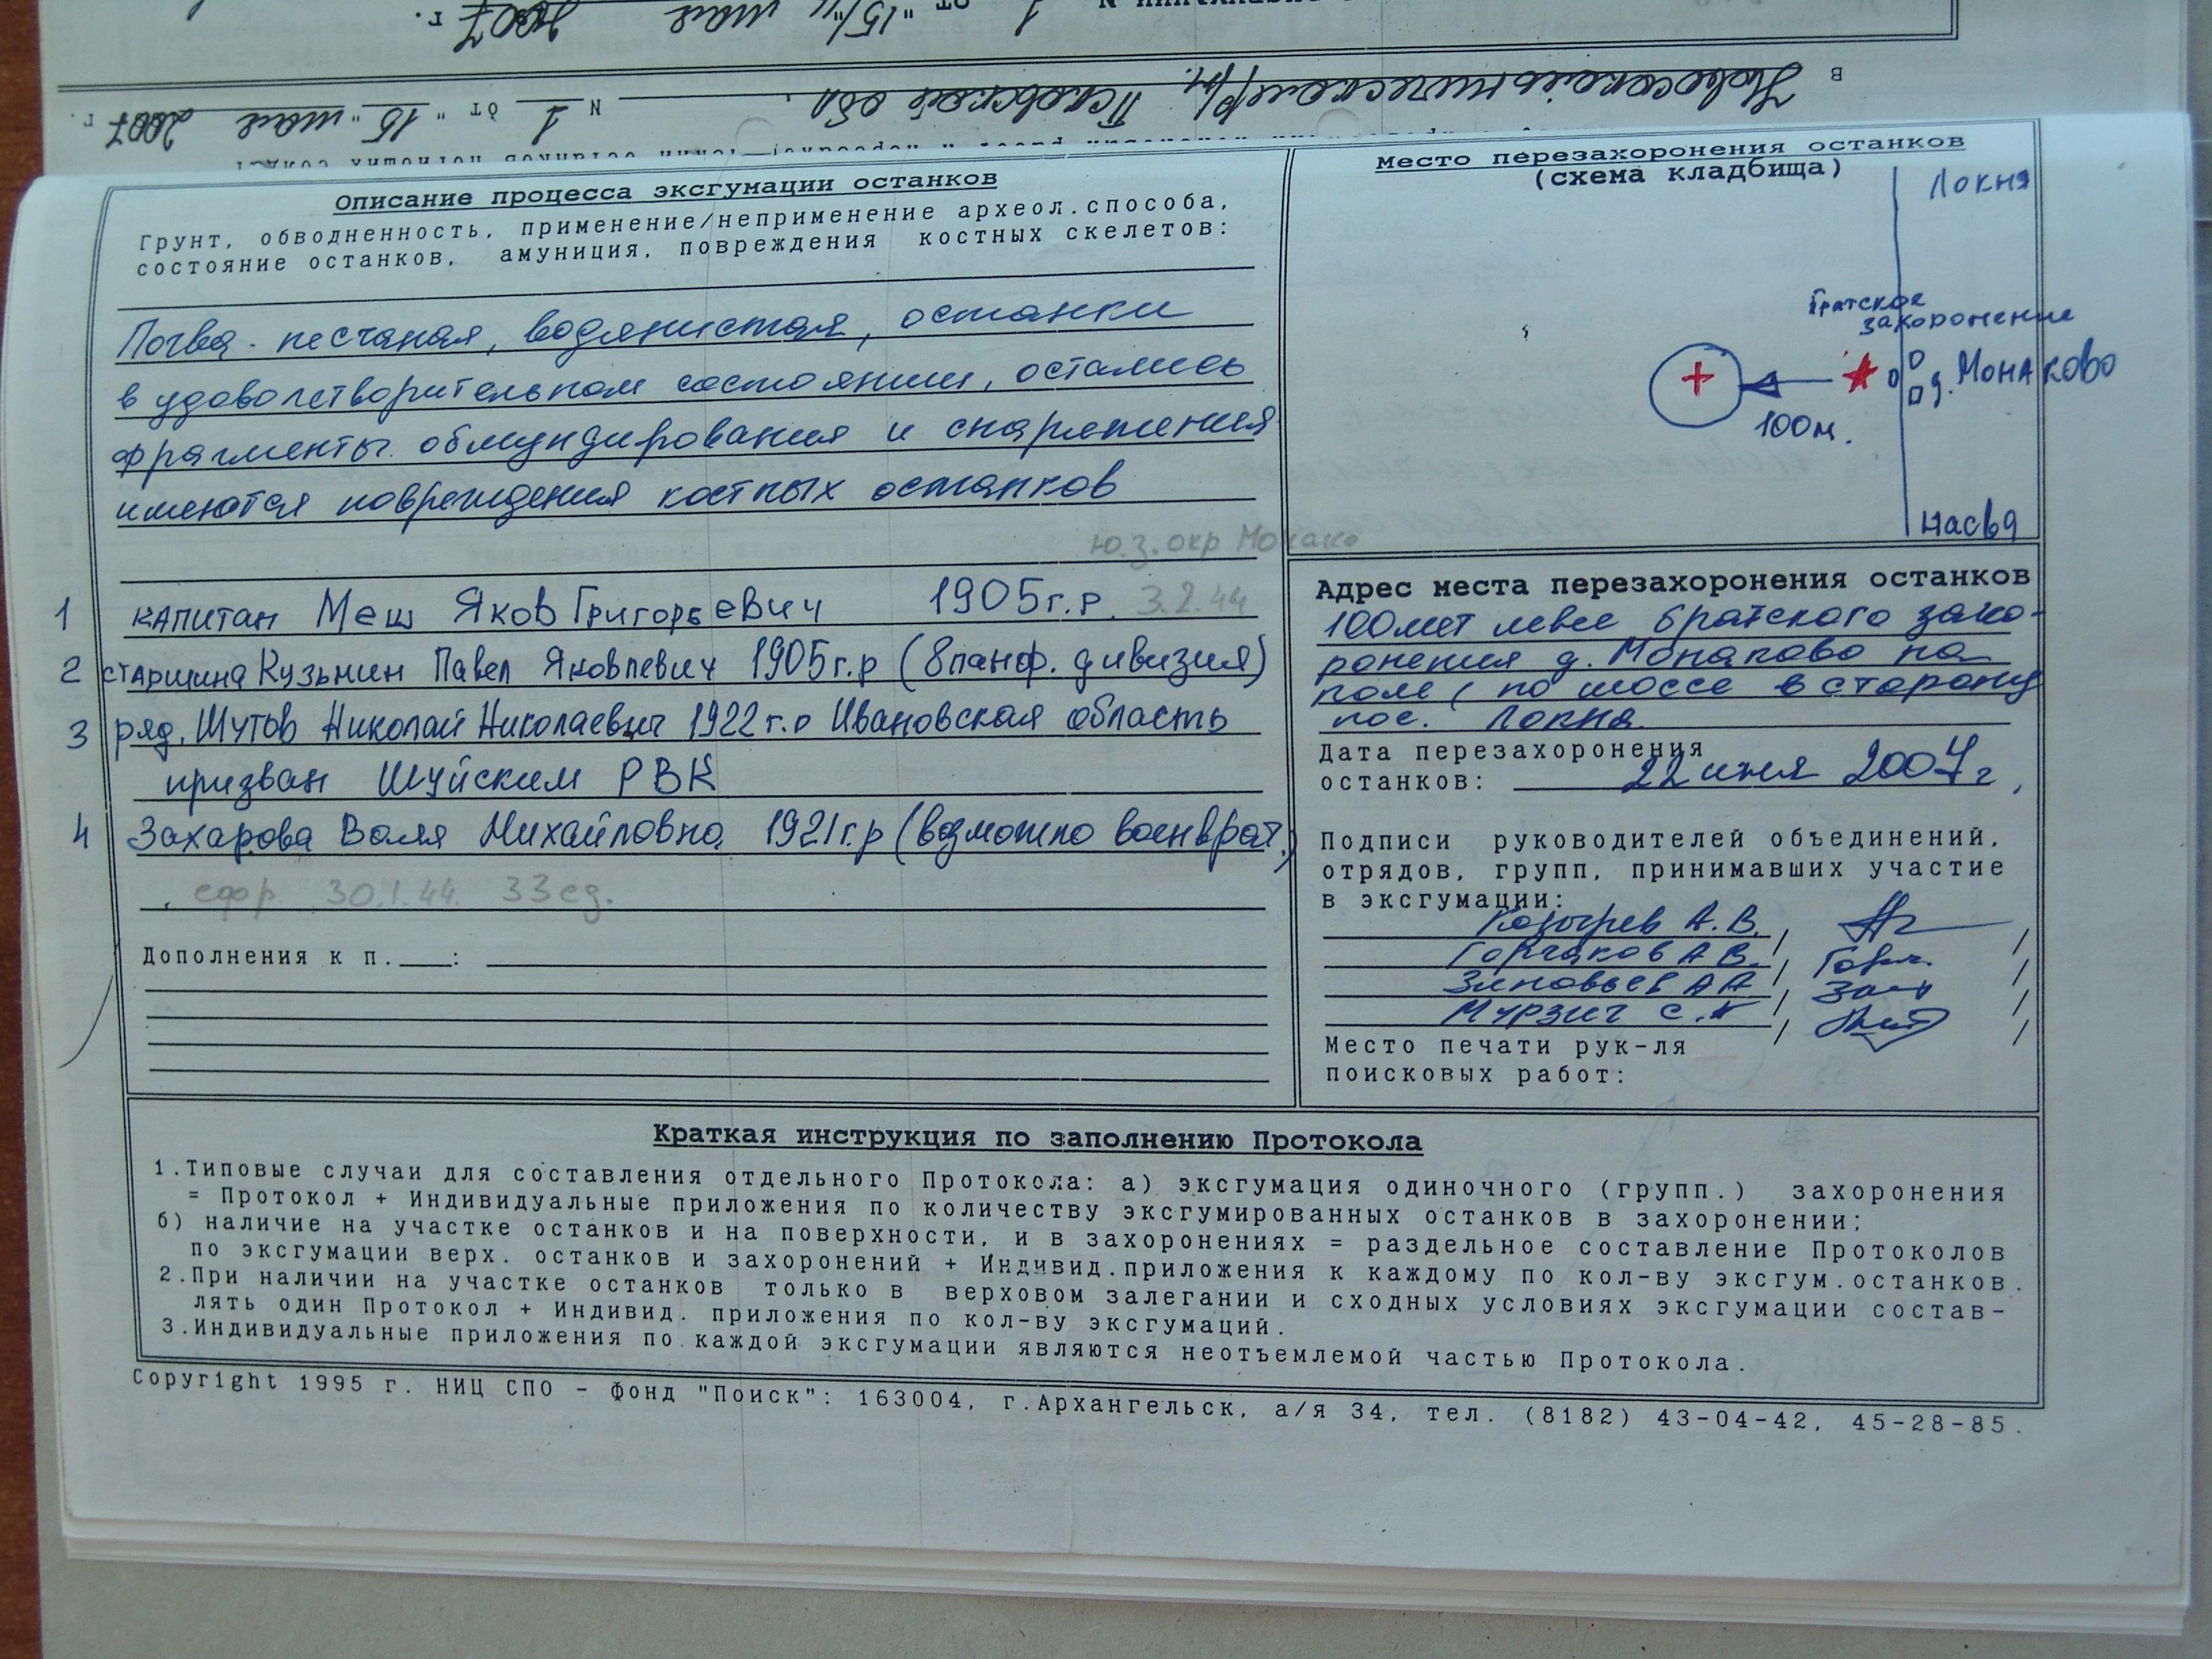 1 от "15/" мая 2007 г.
в Новосокольническом р/н. Псковской обл.
N 1 от "15" мая 2007 г.
Описание процесса эксгумации останков
Грунт, обводненность, применение/неприменение археол.способа,
состояние останков, амуниция, повреждения костных скелетов:
Почва - песчаная, водянистая, останки
в удоволетворительном состоянии, остались
фрагменты обмундирования и снаряжения
имеются повреждения костных останков
ю.з. окр Монако
1 капитан Меш Яков Григорьевич 1905г.р. 3.2.44
2 старшина Кузьмин Павел Яковлевич 1905г.р (8 панф. дивизия)
3 ряд. Шутов Николай Николаевич 1922г.р Ивановская область
призван Шуйским РВК
4 Захарова Валя Михайловна 1921г.р (возможно военврач.)
ефр 30.1.44. 33 сд.
Дополнения к п.____:
место перезахоронения останков
(схема кладбища)
Локня
Братское
захоронение
д. Монаково
100м.
Насва
Адрес места перезахоронения останков
100мет левее братского захо-
ронения д. Монаково на
поле (по шоссе в сторону
пос. Локня
Дата перезахоронения
останков: 22 июня 2007г,
Подписи руководителей объединений,
отрядов, групп, принимавших участие
в эксгумации:
Козырев А.В. / /
Горчаков А В. / Горч. /
Зиновьев А А / /
Мурзич С. / /
Место печати рук-ля
поисковых работ:
Краткая инструкция по заполнению Протокола
1.Типовые случаи для составления отдельного Протокола: а) эксгумация одиночного (групп.) захоронения
= Протокол + Индивидуальные приложения по количеству эксгумированных останков в захоронении;
б) наличие на участке останков и на поверхности, и в захоронениях = раздельное составление Протоколов
по эксгумации верх. останков и захоронений + Индивид.приложения к каждому по кол-ву эксгум.останков.
2.При наличии на участке останков только в верховом залегании и сходных условиях эксгумации состав-
лять один Протокол + Индивид. приложения по кол-ву эксгумаций.
3.Индивидуальные приложения по каждой эксгумации являются неотъемлемой частью Протокола.
Copyright 1995 г. НИЦ СПО - Фонд "Поиск": 163004, г.Архангельск, а/я 34, тел. (8182) 43-04-42, 45-28-85.